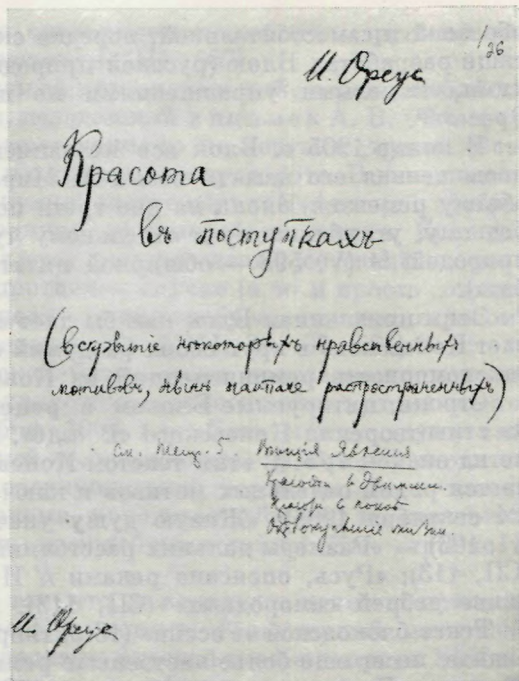 /26
И. Ореус
Красота
въ поступкахъ
(вскрытіе нѣкоторыхъ нравственныхъ
мотивовъ, нынѣ наипаче распространенныхъ)
См. 5
явленія
Красота в движении.
Красота в
жизни
И. Ореус